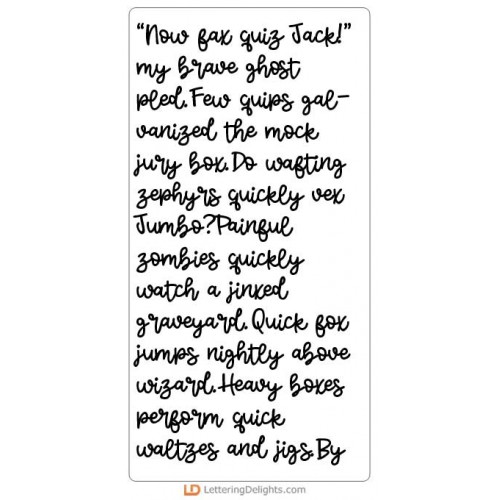 “Now fax quiz Jack!”
my brave ghost
pled. Few quips gal-
vanized the mock
jury box. Do wafting
zephyrs quickly vex
Jumbo? Painful
zombies quickly
watch a jinxed
graveyard. Quick fox
jumps nightly above
wizard. Heavy boxes
perform quick
waltzes and jigs. By
LD LetteringDelights.com